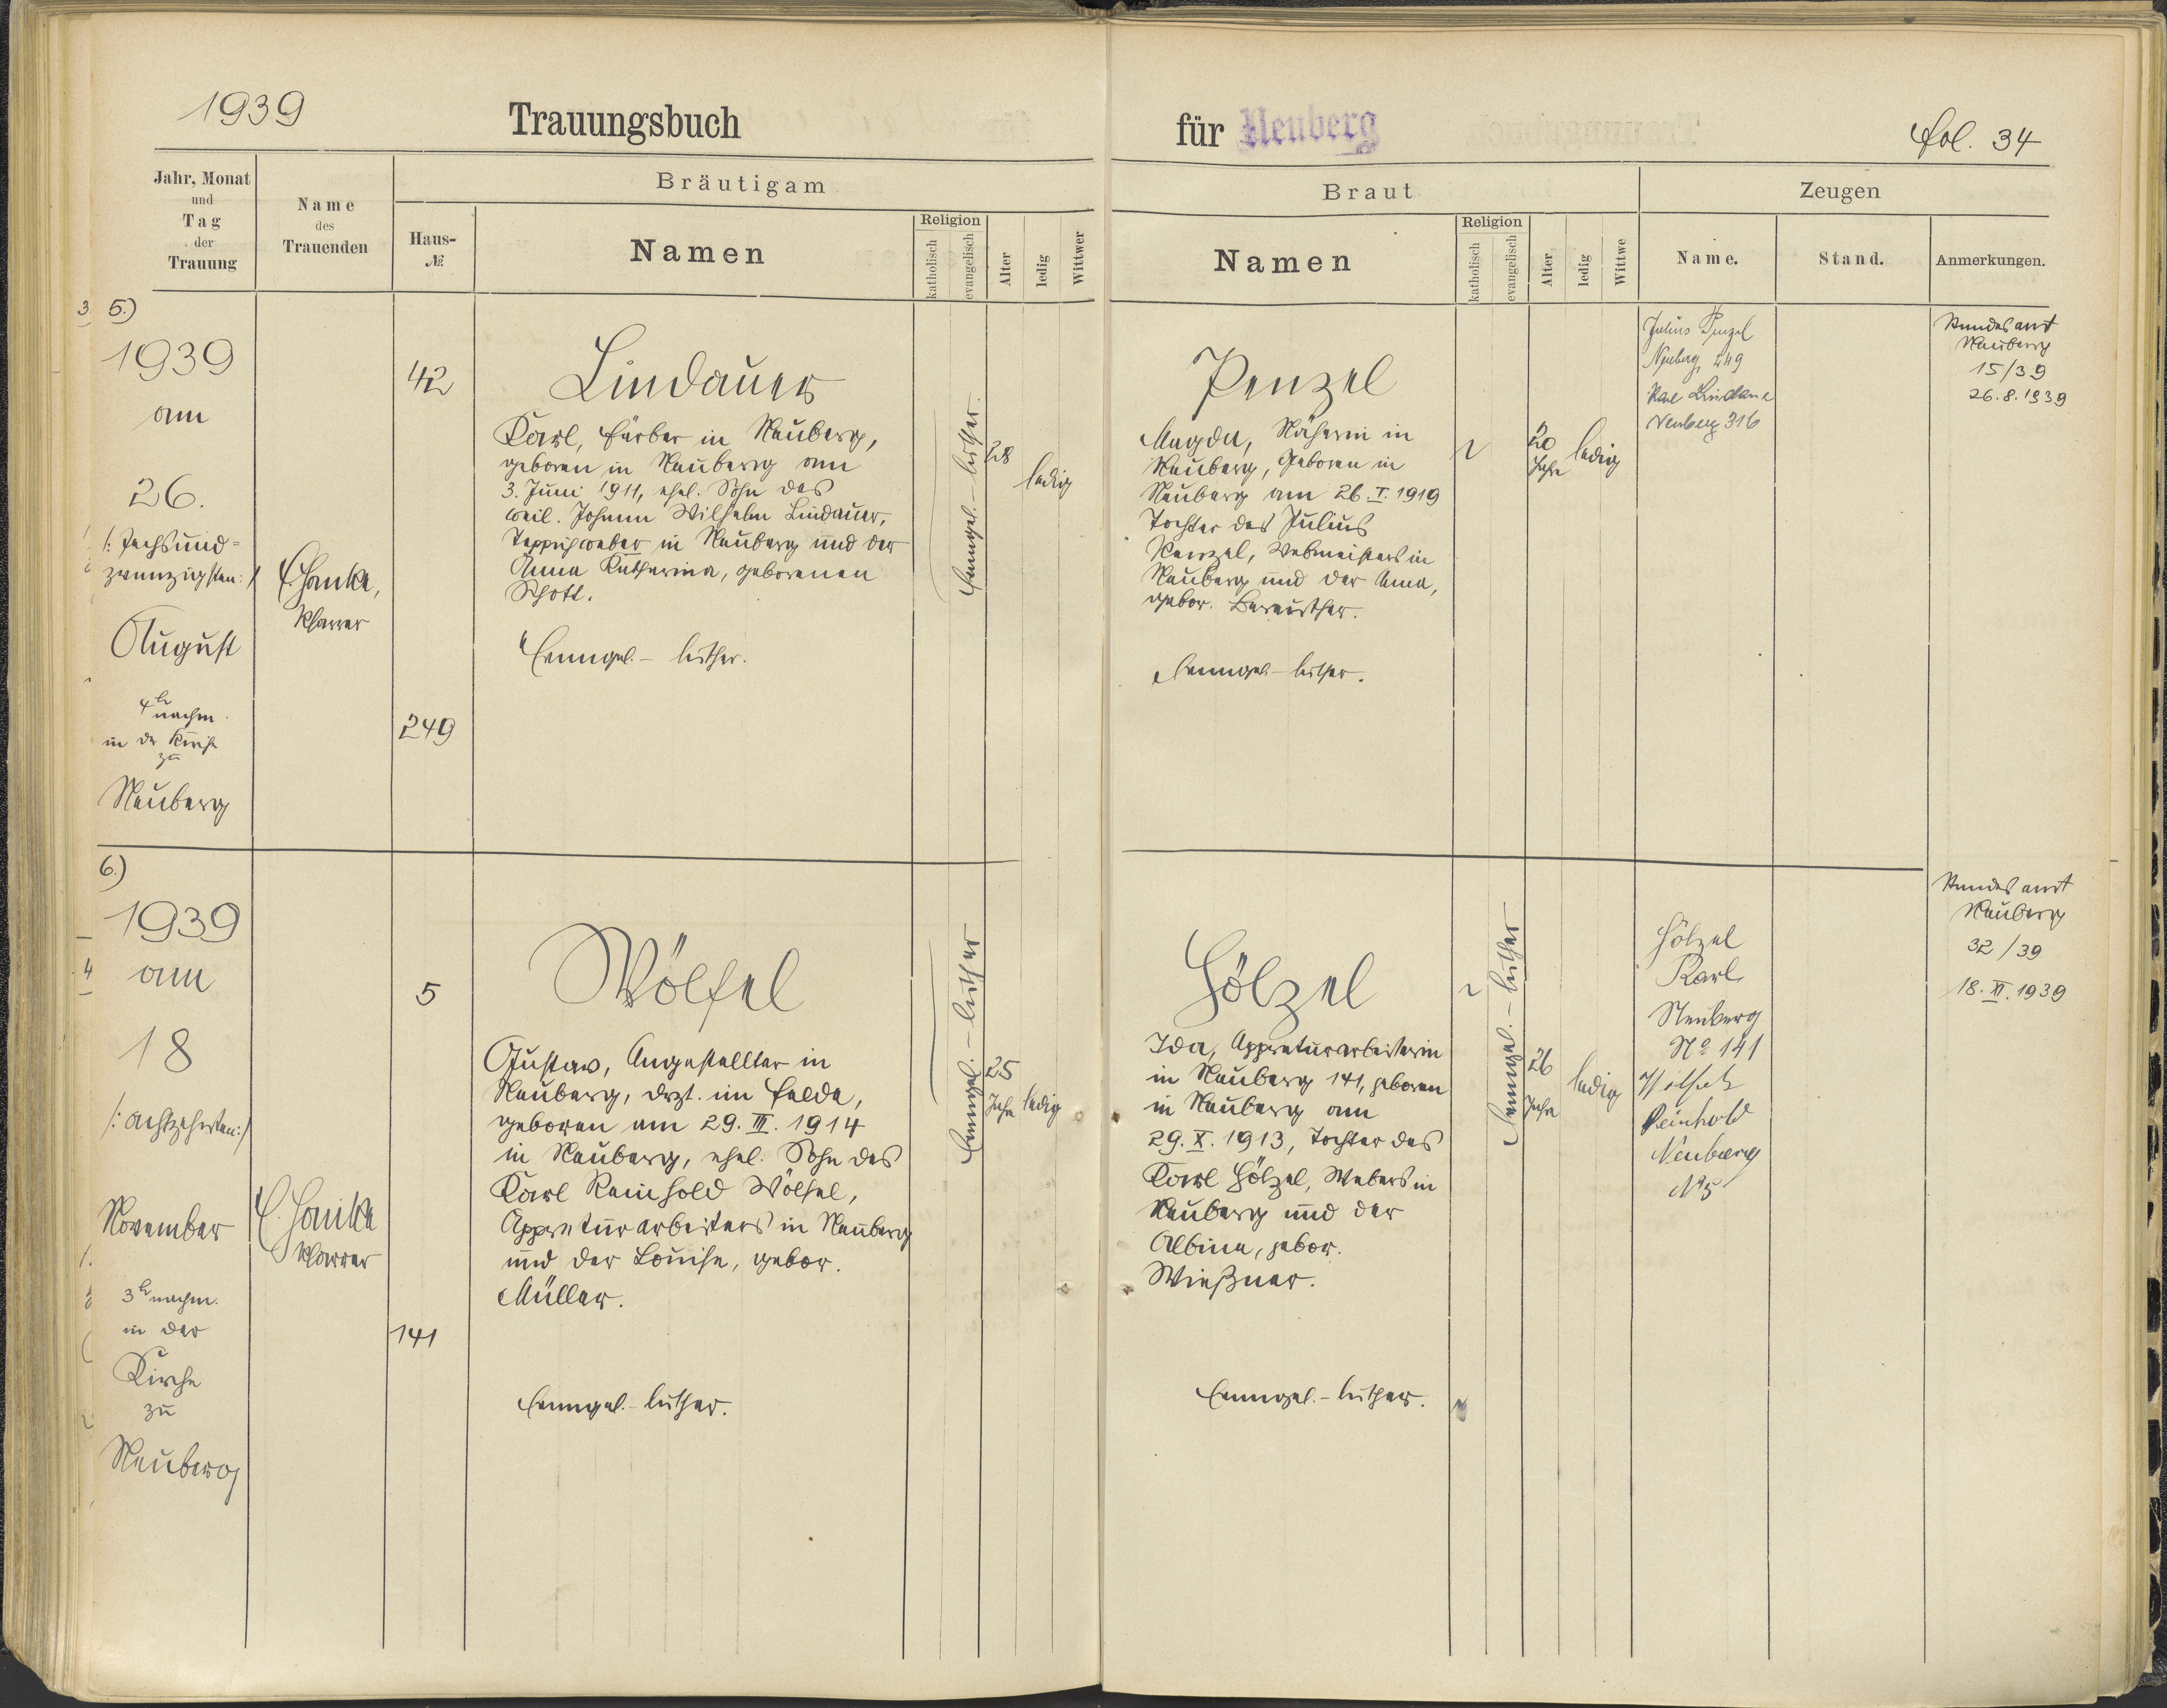 1939
Trauungsbuch
für Neuberg
fol. 34
Jahr, Monat
und
Tag
der
Trauung
Name
des
Trauenden
Bräutigam
Haus-
№
Namen
Religion
katholisch
evangelisch
Alter
ledig
Wittwer
Braut
Namen
Religion
katholisch
evangelisch
Alter
ledig
Wittwe
Zeugen
Name.
Stand.
Anmerkungen.
5.)
1939
am
26.
/: sechsund-
zwanzigsten :/
August
4 h nachm.
in der Kirche
zu
Neuberg
Pfarrer
42
249
Lindauer
Karl, Färber in Neuberg,
geboren in Neuberg am
3. Juni 1911, ehel. Sohn des
weil. Johann Wilhelm Lindauer,
Teppichweber in Neuberg und der
Anna Katharina, geborenen
Schott.
Evangel.- luther.
Evangel.- luther.
28
ledig
Penzel
Magda, Näherin in
Neuberg, geboren in
Neuberg am 26. I. 1919
Tochter des Julius
Penzel, Webmeisters in
Neuberg und der Anna,
gebor.
Evangel.- luther.
20
Jahre
ledig
Julius Penzel
Neuberg, 249
Karl Lindauer
Neuberg 316
Standesamt
Neuberg
15/39
26.8.1939
6.)
1939
am
18
/: achtzehnten :/
November
3 h nachm.
in der
Kirche
zu
Neuberg
Pfarrer
5
141
Wölfel
Gustav, Angestellter in
Neuberg, drzt. im Felde,
geboren am 29. III. 1914
in Neuberg, ehel. Sohn des
Karl Reinhold Wölfel,
Appreturarbeiters in Neuberg
und der Louise, gebor.
Müller.
Evangel.- luther.
Evangel.- luther
25
Jahre
ledig
Hölzel
Ida, Appreturarbeiterin
in Neuberg 141, geboren
in Neuberg am
29. X. 1913, Tochter des
Karl Hölzel, Webers in
Neuberg und der
Albina, gebor.
Wießner.
Evangel.- luther.
Evangel.- luther
26
Jahre
ledig
Hölzel
Karl
Neuberg
Nº 141
Wölfel
Reinhold
Neuberg
Nº 5
Standesamt
Neuberg
32/39
18. XI. 1939